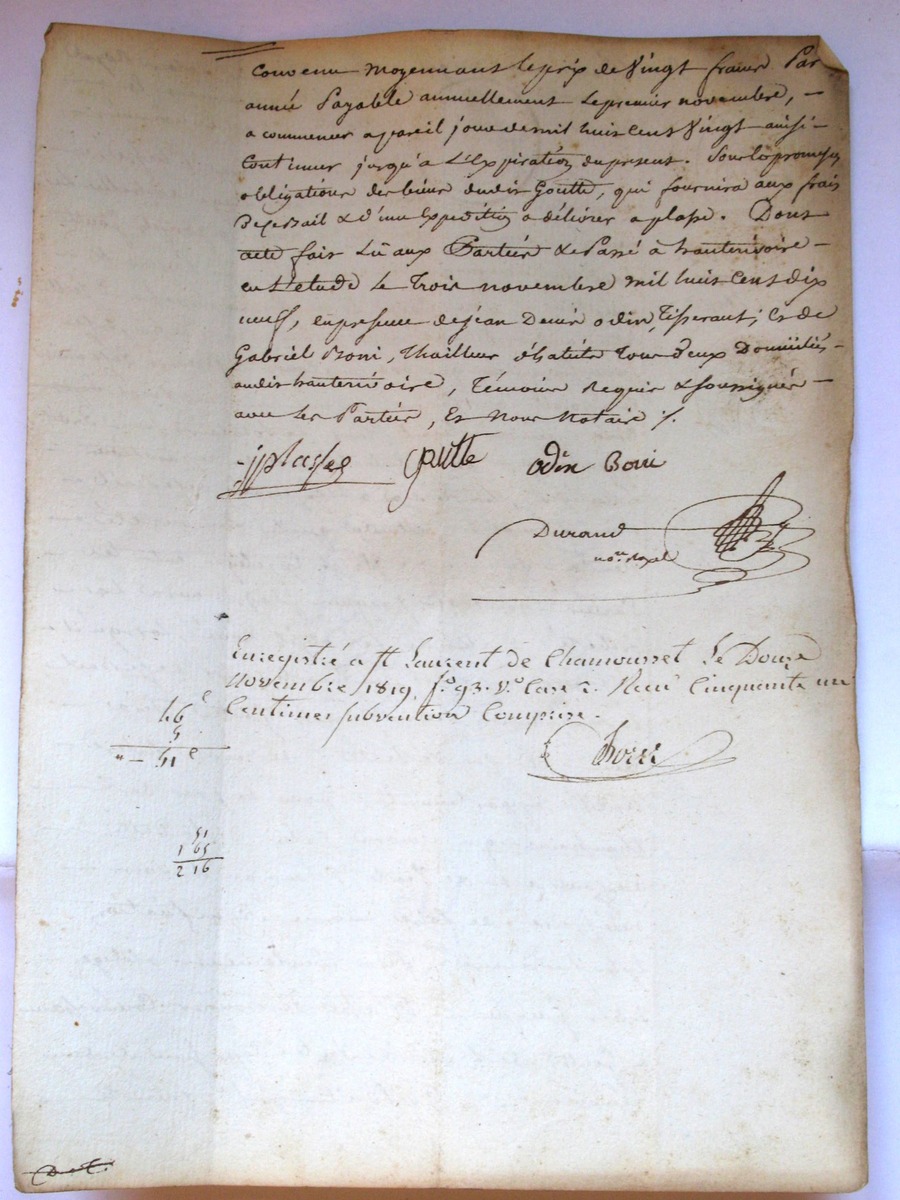 Convenu moyennant le prix de Vingt francs Par
année Payable annuellement le premier novembre, –
a commencer a pareil jour de mil huit cent Vingt ainsi –
Continuer jusqu'a L'Expiration du present. Sous les promesses
obligations des biens dudit Goutte, qui fournira aux frais
De ce Bail & d'une Expedition a délivrer a plasse. Dont
acte fait Lu aux Parties & Passé à hauterivoire –
en L'etude le Trois novembre mil huit cent dix
neuf, en presence de jean Denis odin, Tisserant; Et de
Gabriel Boni, Thailleur d'habits Tous deux Domiciliés –
audit hauterivoire, Témoins Requis & soussignés –
avec les Parties, Et Nous Notaire /.
jj plasse Goutte odin Boni
Durand
no.re Royal
Enregistré a St Laurent de Chamousset Le Douze
Novembre 1819, f.o 93. V.o Case 2. Recu Cinquante un
Centimes subvention Comprise.
46 c
5
" – 51 c
51
1 65
2 16